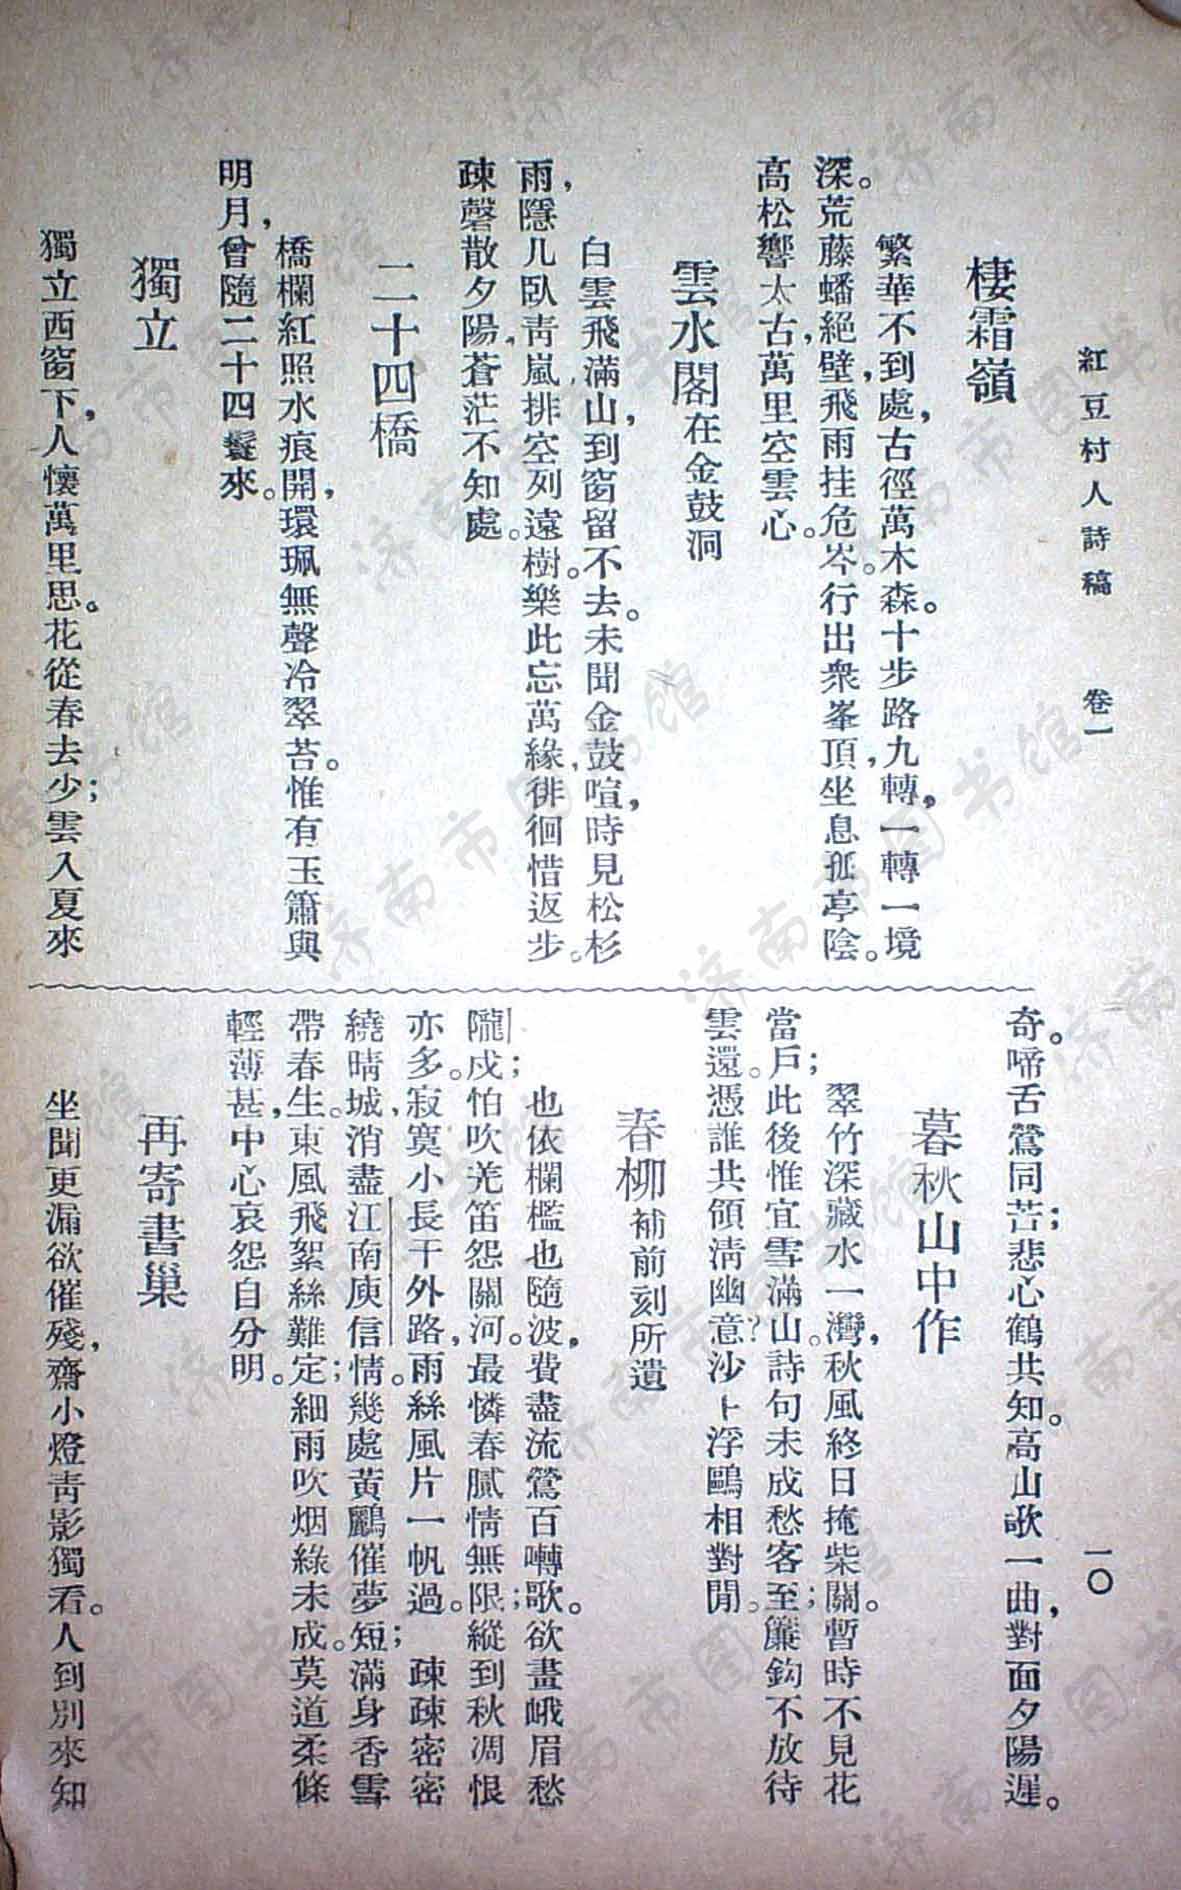 紅豆村人詩稿　卷一　一〇
棲霜嶺
繁華不到處，古徑萬木森。十步路九轉，一轉一境
深。荒藤蟠絕壁，飛雨挂危岑。行出衆峯頂，坐息孤亭陰。
高松響太古，萬里空雲心。
雲水閣在金鼓洞
白雲飛滿山，到窗留不去。未聞金鼓喧，時見松杉
雨，隱几臥青嵐，排空列遠樹。樂此忘萬緣，徘徊惜返步。
疎磬散夕陽，蒼茫不知處。
二十四橋
橋欄紅照水痕開，環珮無聲冷翠苔。惟有玉簫與
明月，曾隨二十四鬟來。
獨立
獨立西窗下，人懷萬里思。花從春去少；雲入夏來
奇。啼舌鶯同苦；悲心鶴共知。高山歌一曲，對面夕陽遲。
暮秋山中作
翠竹深藏水一灣，秋風終日掩柴關。暫時不見花
當戶；此後惟宜雪滿山。詩句未成愁客至；簾鈎不放待
雲還。憑誰共領清幽意？沙上浮鷗相對閒。
春柳補前刻所遺
也依欄檻也隨波，費盡流鶯百囀歌。欲畫峨眉愁
隴戍；怕吹羌笛怨關河。最憐春膩情無限；縱到秋凋恨
亦多。寂寞小長干外路，雨絲風片一帆過。　疎疎密密
繞晴城，消盡江南庾信情；幾處黃鸝催夢短；滿身香雪
帶春生。東風飛絮絲難定；細雨吹烟綠未成。莫道柔條
輕薄甚，中心哀怨自分明。
再寄書巢
坐聞更漏欲催殘，齋小燈青影獨看。人到別來知
濟南市图书馆